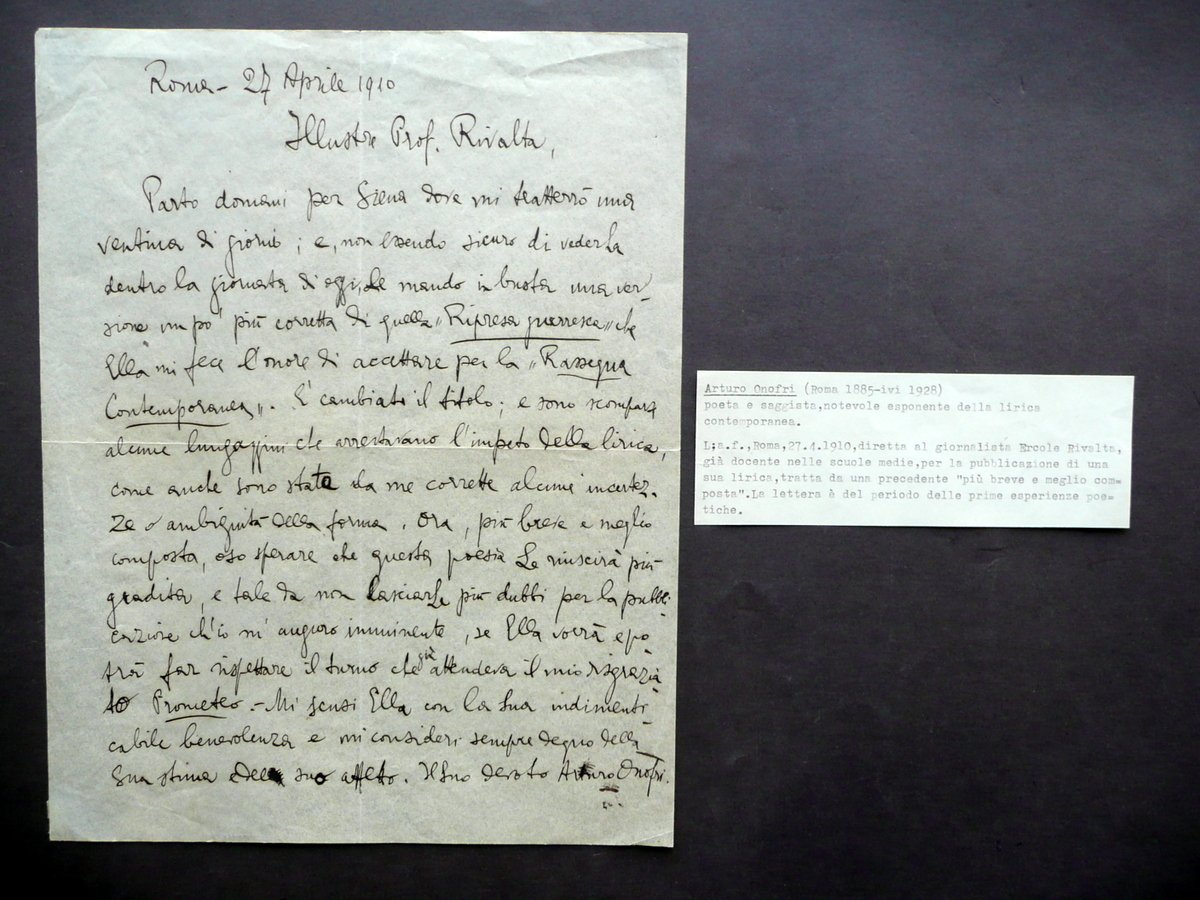 Roma - 27 Aprile 1910
Illustre Prof. Rivalta,
Parto domani per Siena dove mi tratterrò una
ventina di giorni; e, non essendo sicuro di vederLa
dentro la giornata di oggi, Le mando in busta una ver-
sione un po' più corretta di quella "Ripresa guerresca" che
Ella mi fece l'onore di accettare per la "Rassegna
Contemporanea". È cambiato il titolo; e sono scomparse
alcune lungaggini che arrestavano l'impeto della lirica,
come anche sono state da me corrette alcune incertez-
ze o ambiguità della forma. Ora, più breve e meglio
composta, oso sperare che questa poesia Le riuscirà più
gradita, e tale da non lasciarLe più dubbi per la pubbli-
cazione ch'io m'auguro imminente, se Ella vorrà e po-
trà far rispettare il turno che già attendeva il mio disgrazia-
to Prometeo. - Mi scusi Ella con la Sua indimenti-
cabile benevolenza e mi consideri sempre degno della
Sua stima e del suo affetto. Il Suo devoto Arturo Onofri.
Arturo Onofri (Roma 1885-ivi 1928)
poeta e saggista,notevole esponente della lirica
contemporanea.
L;a.f.,Roma,27.4.1910,diretta al giornalista Ercole Rivalta,
già docente nelle scuole medie,per la pubblicazione di una
sua lirica,tratta da una precedente "più breve e meglio com=
posta".La lettera è del periodo delle prime esperienze poe=
tiche.